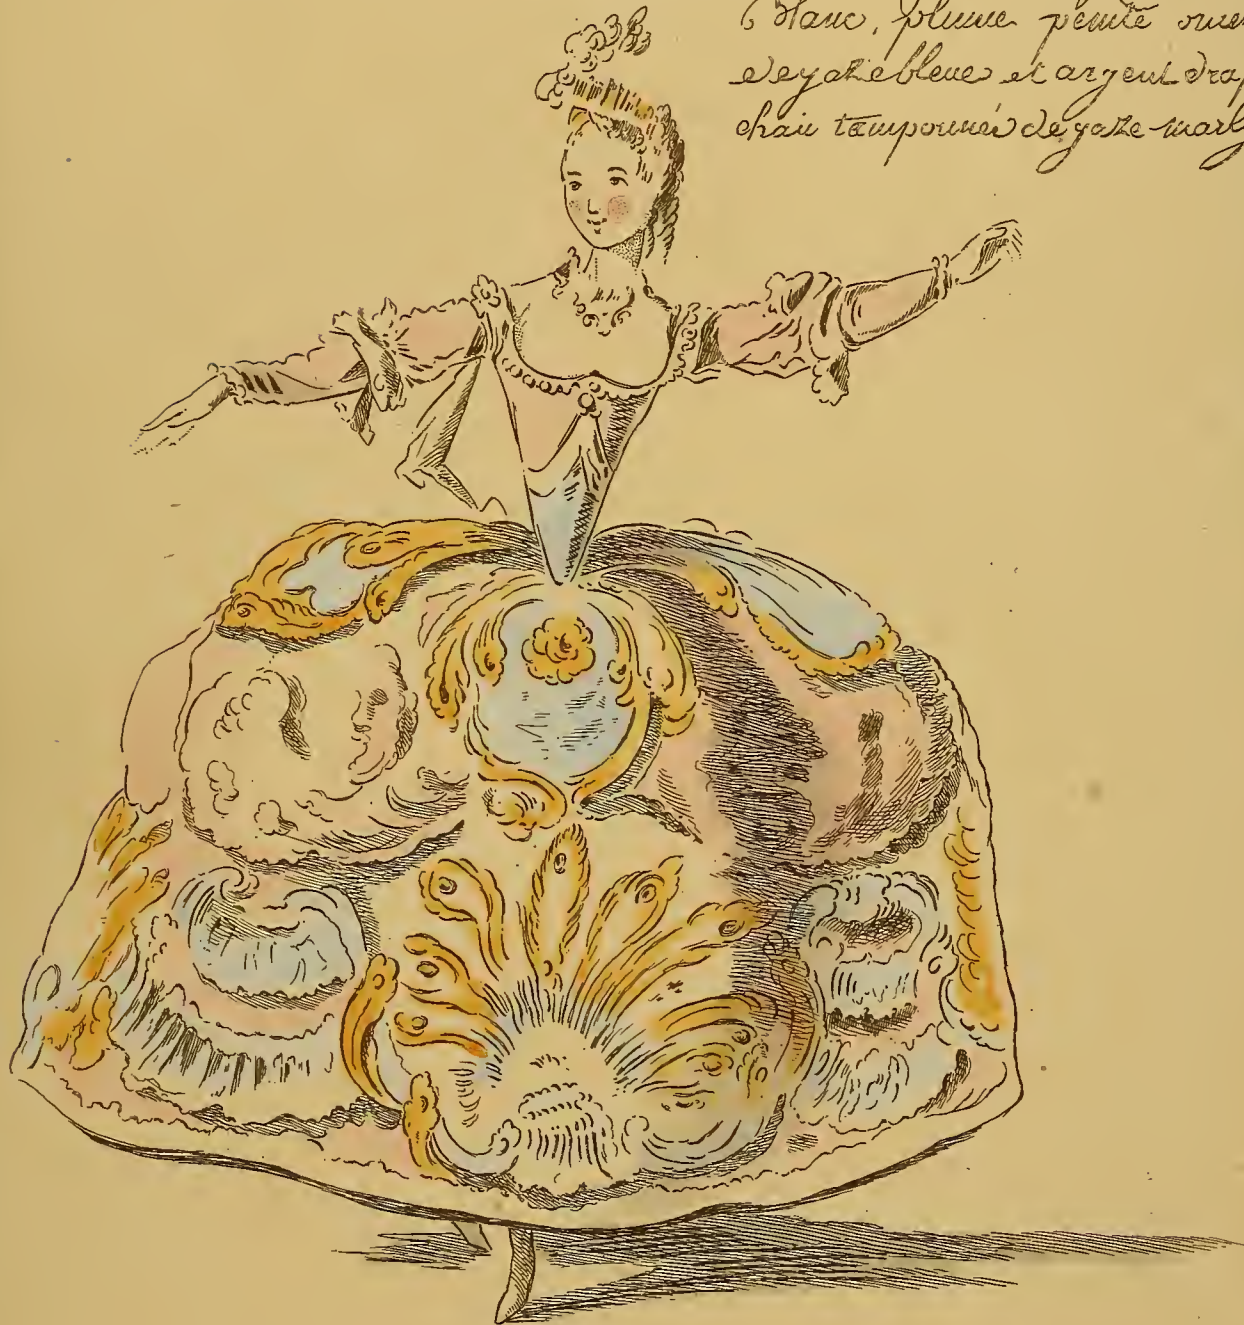 Blanc, plume peinte
de gaze bleue et argent drap
chair tamponnée de gaze